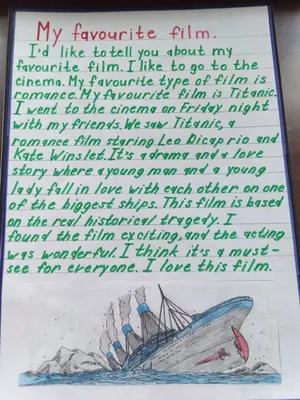 My favourite film.
I'd like to tell you about my
favourite film. I like to go to the
cinema. My favourite type of film is
romance. My favourite film is Titanic.
I went to the cinema on Friday night
with my friends. We saw Titanic, a
romance film staring Leo Dicaprio and
Kate Winslet. It's a drama and a love
story where a young man and a young
lady fall in love with each other on one
of the biggest ships. This film is based
on the real historical tragedy. I
found the film exciting, and the acting
was wonderful. I think it's a must-
see for everyone. I love this film.